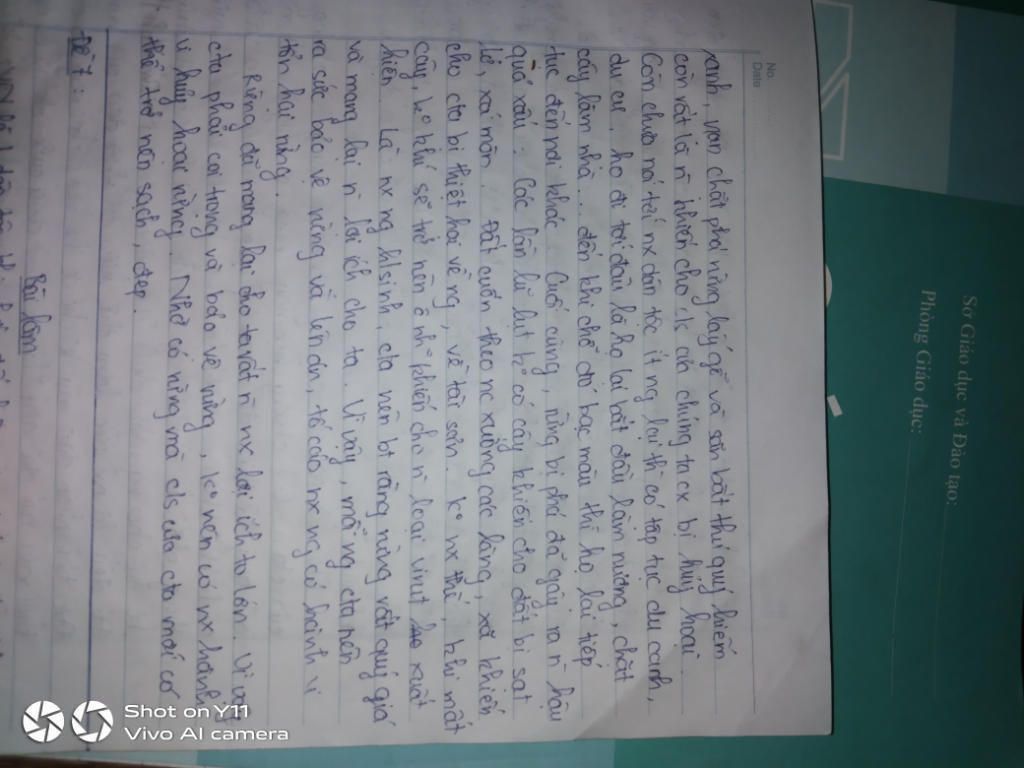 Sở Giáo dục và Đào tạo:
Phòng Giáo dục:
No.
Date
xanh, nạn chặt phá rừng lấy gỗ và săn bắt thú quý hiếm
còn rất là n̄ khiến cho c/s của chúng ta cx bị huỷ hoại.
Còn chưa nói tới nx dân tộc ít ng lại thì có tập tục du canh,
du cư, họ đi tới đâu là họ lại bắt đầu làm nương, chặt
cây làm nhà... đến khi chỗ đó bạc màu thì họ lại tiếp
tục đến nơi khác. Cuối cùng, rừng bị phá đã gây ra n̄ hậu
quả xấu. Các lần lũ lụt k° có cây khiến cho đất bị sạt
lở, xói mòn. Đất cuốn theo nc xuống các lòng, xã khiến
cho cta bị thiệt hại về ng, về tài sản. K° nx thế, khi mất
cây, k° khí sẽ trở nên ô nh° khiến cho n̄ loại virut xuất
hiện. Là nx ng h/sinh, cta nên bt rằng rừng rất quý giá
và mang lại n̄ lợi ích cho ta. Vì vậy, mỗi ng cta nên
ra sức bảo vệ rừng và lên án, tố cáo nx ng có hành vi
tổn hại rừng.
Rừng đã mang lại cho ta rất n̄ nx lợi ích to lớn. Vì vậy
cta phải coi trọng và bảo vệ rừng, k° nên có nx hành
vi huỷ hoại rừng. Nhờ có rừng mà c/s của cta mới có
thể trở nên sạch, đẹp.
Đề 7:
Bài làm
Shot on Y11
Vivo AI camera